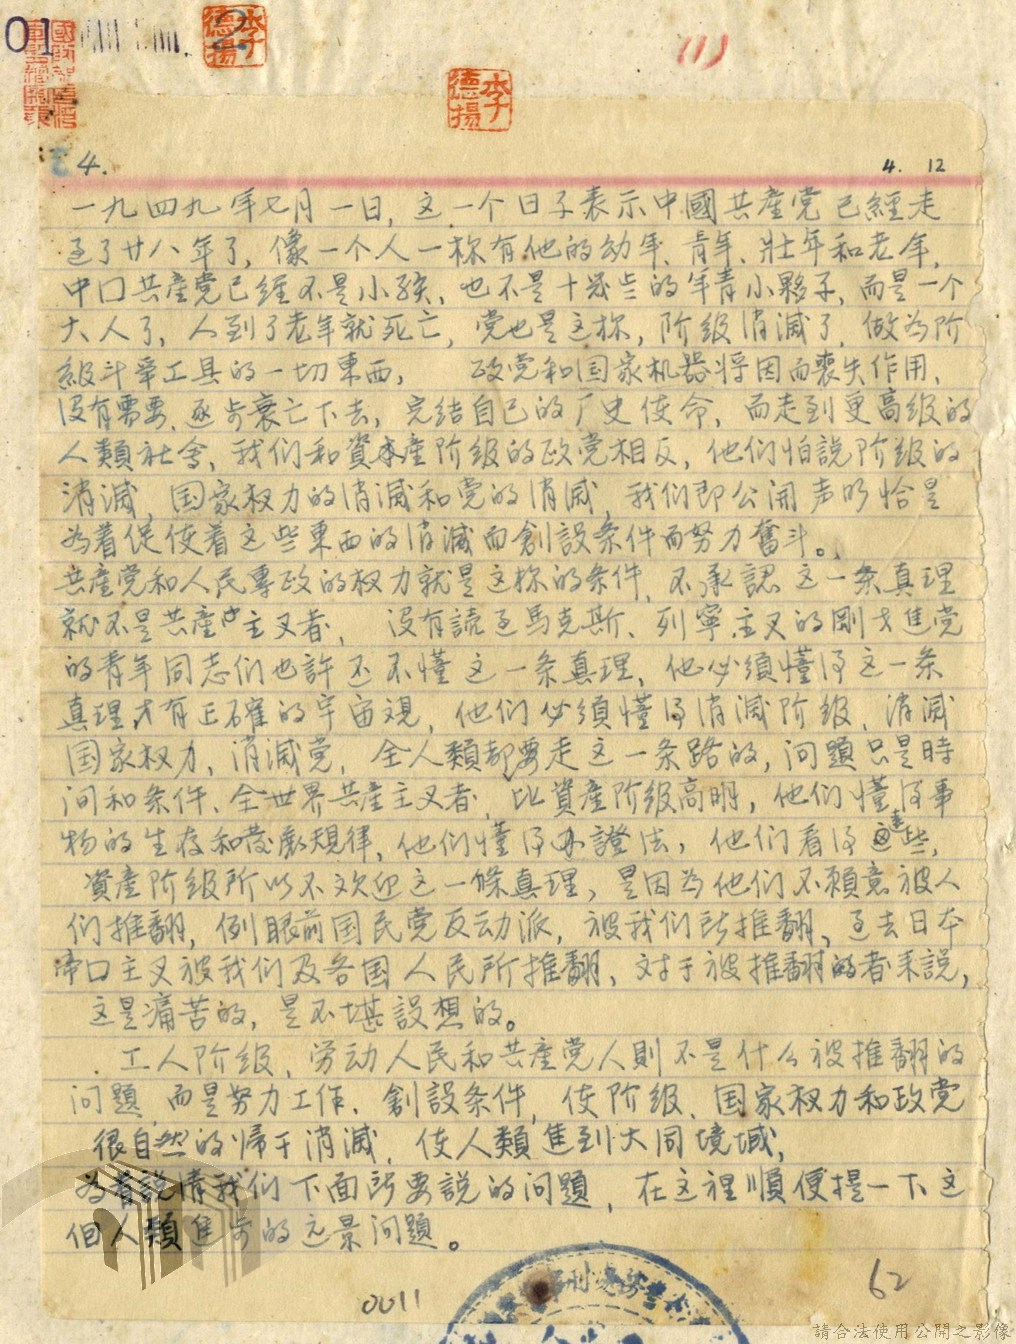 01
李德揚
2
(1)
李德揚
4.
4. 12
一九四九年七月一日，这一个日子表示中國共產党已經走
过了廿八年了，像一个人一样有他的幼年、青年、壮年和老年，
中口共產党已經不是小孩，也不是十幾岁的年青小夥子，而是一个
大人了，人到了老年就死亡，党也是这样，阶级消滅了，做为阶
級斗爭工具的一切東西， 政党和国家机器将因而喪失作用，
没有需要、逐步衰亡下去，完结自己的厂史使命，而走到更高级的
人類社会，我们和資本產阶级的政党相反，他们怕說阶级的
消滅，国家权力的消滅和党的消滅，我们即公開声明恰是
為着促使着这些東西的消滅而創設条件而努力奮斗。
共產党和人民專政的权力就是这样的条件，不承認这一条真理
就不是共產主义者， 没有読过馬克斯、列寧主义的剛才進党
的青年同志们也許还不懂这一条真理，他必須懂得这一条
真理才有正確的宇宙观，他们必須懂得消滅阶级，消滅
国家权力、消滅党，全人類都要走这一条路的，问題只是時
间和条件、全世界共產主义者，比資產阶级高明，他们懂得事
物的生存和發展規律，他们懂得办證法，他们看得遠些，
資產阶级所以不欢迎这一條真理，是因为他们不願意被人
们推翻，例眼前国民党反动派，被我们所推翻，过去日本
帝口主义被我们及各国人民所推翻，对于被推翻的者来說，
这是痛苦的，是不堪設想的。
工人阶级，劳动人民和共產党人則不是什么被推翻的
问題，而是努力工作、創設条件，使阶级、国家权力和政党
很自然的歸于消滅，使人類進到大同境域，
為着說清我们下面所要說的问題，在这裡順便提一下这
個人類進步的远景问題。
0011
62
請合法使用公開之影像